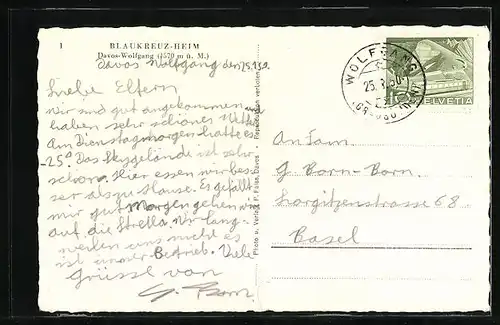 1 BLAUKREUZ-HEIM
Davos-Wolfgang (1570 m ü. M.)
Davos Wolfgang den 25.1.50.
Liebe Eltern
Wir sind gut angekommen und
haben sehr schönes Wetter
Am Dienstagmorgen hatte es
-25° Das Skygelände ist sehr
schön. Hier essen wir bes
ser als zu Hause. Es gefällt
mir gut Morgen gehen wir
auf die Strella. Wir lang-
weilen uns nicht es
ist immer Betrieb. Viele
Grüsse von
G. Born.
Photo u. Verlag P. Faiss, Davos - Reproduktion verboten
WOLFGANG
25.1.50
HELVETIA
An Fam.
G. Born-Born
Largitzenstrasse 68
Basel